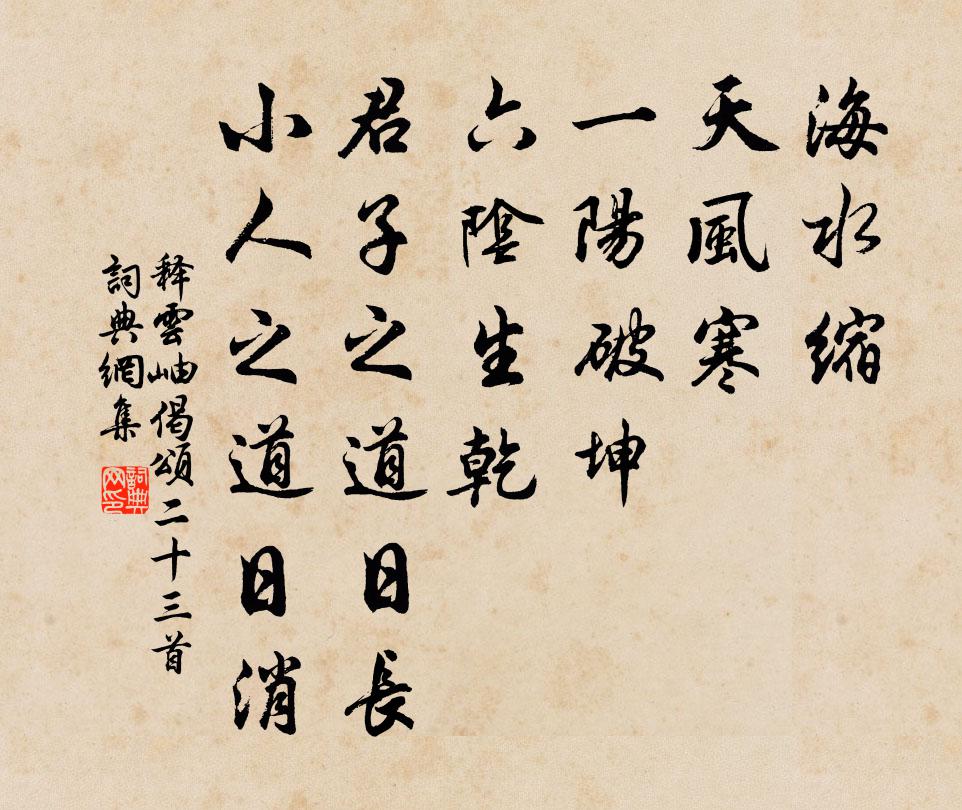 海水縮
天風寒
一陽破坤
六陰生乾
君子之道日長
小人之道日消
释雲岫偈頌二十三首
詞典網集
詞典
网印